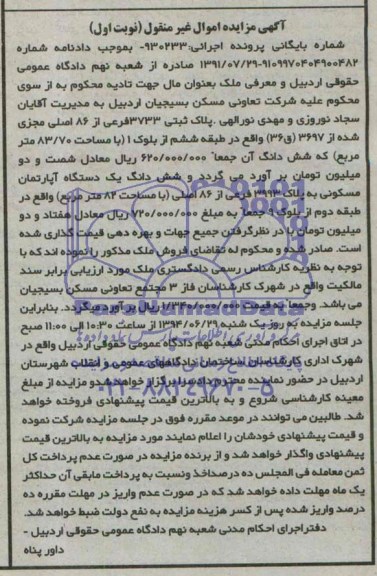 آگهی مزایده اموال غیر منقول (نوبت اول)
شماره بایگانی پرونده اجرائی:۹۳۰۲۳۳- بموجب دادنامه شماره
۹۱۰۹۹۷۰۴۰۴۹۰۰۴۸۲-۱۳۹۱/۰۷/۲۹ صادره از شعبه نهم دادگاه عمومی
حقوقی اردبیل و معرفی ملک بعنوان مال جهت تادیه محکوم به از سوی
محکوم علیه شرکت تعاونی مسکن بسیجیان اردبیل به مدیریت آقایان
سجاد نوروزی و مهدی نورالهی .پلاک ثبتی ۳۷۳۳فرعی از ۸۶ اصلی مجزی
شده از ۳۶۹۷ (ق۳۶) واقع در طبقه ششم از بلوک ۱ (با مساحت ۸۳/۷۰ متر
مربع) که شش دانگ آن جمعا ۶۲۰/۰۰۰/۰۰۰ ریال معادل شصت و دو
میلیون تومان بر آورد می گردد و شش دانگ یک دستگاه آپارتمان
مسکونی به پلاک ۳۹۹۳ فرعی از ۸۶ اصلی (با مساحت ۸۲ متر مربع) واقع در
طبقه دوم از بلوک ۹ جمعا به مبلغ ۷۲۰/۰۰۰/۰۰۰ ریال معادل هفتاد و دو
میلیون تومان با در نظرگرفتن جمیع جهات و بهره دهی قیمت گذاری شده
است. صادر شده و محکوم له تقاضای فروش ملک مذکور را نموده اند که با
توجه به نظریه کارشناس رسمی دادگستری ملک مورد ارزیابی برابر سند
مالکیت واقع در شهرک کارشناسان فاز ۳ مجتمع تعاونی مسکن بسیجیان
می باشد. وجمعا به قیمت ۱/۳۴۰/۰۰۰/۰۰۰ ریال بر آورد میگردد. بنابراین
جلسه مزایده به روز یک شنبه ۱۳۹۴/۰۶/۲۹ از ساعت ۱۰:۳۰ الی ۱۱:۰۰ صبح
در اتاق اجرای احکام مدنی شعبه نهم دادگاه عمومی حقوقی اردبیل واقع در
شهرک اداری کارشناسان ساختمان دادگاههای عمومی و انقلاب شهرستان
اردبیل در حضور نماینده محترم دادسرا برگزار خواهد شدو مزایده از مبلغ
معینه کارشناسی شروع و به بالاترین قیمت پیشنهادی فروخته خواهد
شد. طالبین می توانند در موعد مقرره فوق در جلسه مزایده شرکت نموده
و قیمت پیشنهادی خودشان را اعلام نمایند مورد مزایده به بالاترین قیمت
پیشنهادی واگذار خواهد شد و از برنده مزایده در صورت عدم پرداخت کل
ثمن معامله فی المجلس ده درصداخذ ونسبت به پرداخت مابقی آن حداکثر
یک ماه مهلت داده خواهد شد که در صورت عدم واریز در مهلت مقرره ده
درصد واریز شده پس از کسر هزینه مزایده به نفع دولت ضبط خواهد شد.
دفتراجرای احکام مدنی شعبه نهم دادگاه عمومی حقوقی اردبیل -
داور پناه
ParsNamadData
۰۲۱-۸۸۳۴۹۶۷۰-۵